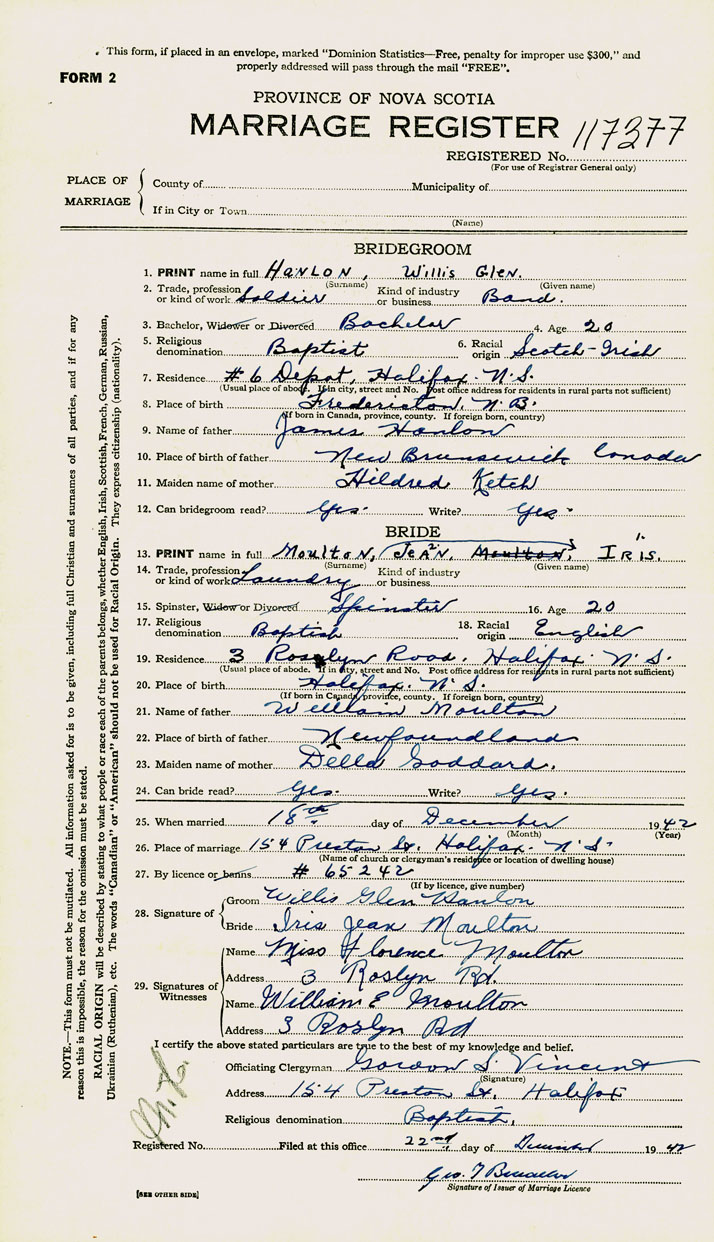 This form, if placed in an envelope, marked "Dominion Statistics—Free, penalty for improper use $300," and
properly addressed will pass through the mail "FREE".
FORM 2
PROVINCE OF NOVA SCOTIA
MARRIAGE REGISTER 117377
REGISTERED No.
(For use of Registrar General only)
PLACE OF MARRIAGE
County of Municipality of
If in City or Town
(Name)
BRIDEGROOM
1. PRINT name in full HANLON, Willis Glen.
(Surname) (Given name)
2. Trade, profession or kind of work Soldier Kind of industry or business Band.
3. Bachelor, Widower or Divorced Bachelor 4. Age 20
5. Religious denomination Baptist 6. Racial origin Scotch-Irish
7. Residence #6 Depot, Halifax N.S.
(Usual place of abode. If in city, street and No. Post office address for residents in rural parts not sufficient)
8. Place of birth Fredericton, N.B.
(If born in Canada, province, county. If foreign born, country)
9. Name of father James Hanlon
10. Place of birth of father New Brunswick Canada
11. Maiden name of mother Hildred Ketch
12. Can bridegroom read? Yes. Write? Yes.
BRIDE
13. PRINT name in full Moulton, JEAN, Moulton, IRIS.
(Surname) (Given name)
14. Trade, profession or kind of work Laundry Kind of industry or business
15. Spinster, Widow or Divorced Spinster 16. Age 20
17. Religious denomination Baptist 18. Racial origin English
19. Residence 3 Rosslyn Road. Halifax. N.S.
(Usual place of abode. If in city, street and No. Post office address for residents in rural parts not sufficient)
20. Place of birth Halifax. N.S.
(If born in Canada, province, county. If foreign born, country)
21. Name of father William Moulton
22. Place of birth of father Newfoundland
23. Maiden name of mother Della Goddard.
24. Can bride read? Yes. Write? Yes.
25. When married 18th day of December 1942
(Month) (Year)
26. Place of marriage 154 Preston St. Halifax. N.S.
(Name of church or clergyman's residence or location of dwelling house)
27. By licence or banns # 65242
(If by licence, give number)
28. Signature of
Groom Willis Glen Hanlon
Bride Iris Jean Moulton
29. Signatures of Witnesses
Name Miss Florence Moulton
Address 3 Roslyn Rd.
Name William E Moulton
Address 3 Roslyn Rd
I certify the above stated particulars are true to the best of my knowledge and belief.
Officiating Clergyman Gordon S. Vincent
(Signature)
Address 154 Preston St. Halifax
Religious denomination Baptist.
Registered No. Filed at this office 22nd day of December 1942
Geo. T
Signature of Issuer of Marriage Licence
[SEE OTHER SIDE]
NOTE.—This form must not be mutilated. All information asked for is to be given, including full Christian and surnames of all parties, and if for any
reason this is impossible, the reason for the omission must be stated.
RACIAL ORIGIN will be described by stating to what people or race each of the parents belongs, whether English, Irish, Scottish, French, German, Russian,
Ukrainian (Ruthenian), etc. The words "Canadian" or "American" should not be used for Racial Origin. They express citizenship (nationality).